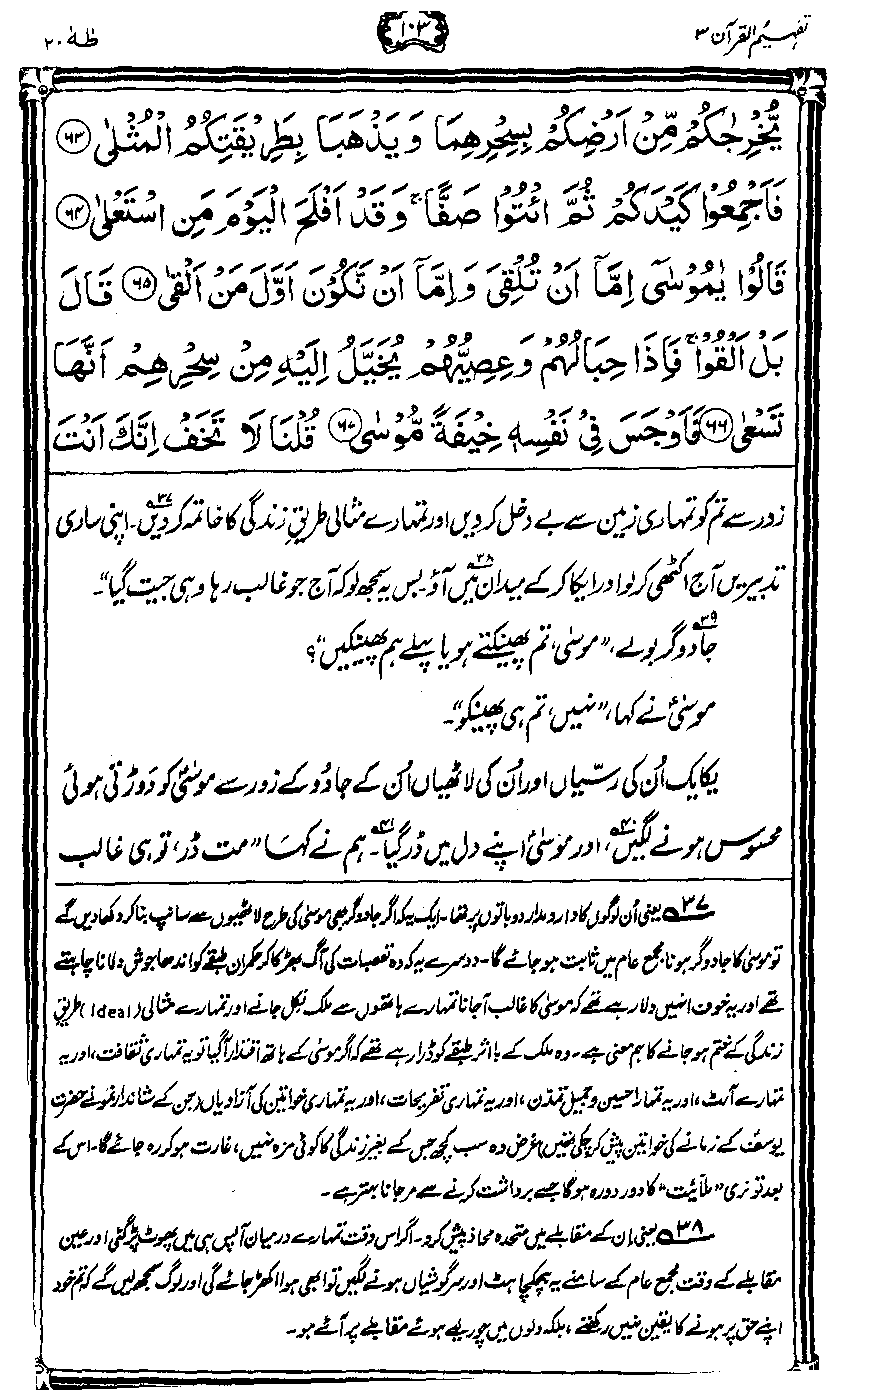 تفہیم القرآن ۳
۱۰۳
طٰہٰ ۲۰
يُّخْرِجٰكُمْ مِّنْ اَرْضِكُمْ بِسِحْرِهِمَا وَيَذْهَبَا بِطَرِيْقَتِكُمُ الْمُثْلٰى ﴿۶۳﴾
فَاَجْمِعُوْا كَيْدَكُمْ ثُمَّ ائْتُوْا صَفًّا ۚ وَقَدْ اَفْلَحَ الْيَوْمَ مَنِ اسْتَعْلٰى ﴿۶۴﴾
قَالُوْا يٰمُوْسٰٓى اِمَّاۤ اَنْ تُلْقِىَ وَاِمَّاۤ اَنْ نَّكُوْنَ اَوَّلَ مَنْ اَلْقٰى ﴿۶۵﴾ قَالَ
بَلْ اَلْقُوْا ۚ فَاِذَا حِبَالُهُمْ وَعِصِيُّهُمْ يُخَيَّلُ اِلَيْهِ مِنْ سِحْرِهِمْ اَنَّهَا
تَسْعٰى ﴿۶۶﴾ فَاَوْجَسَ فِىْ نَفْسِهٖ خِيْفَةً مُّوْسٰى ﴿۶۷﴾ قُلْنَا لَا تَخَفْ اِنَّكَ اَنْتَ
زور سے تم کو تمہاری زمین سے بے دخل کر دیں اور تمہارے مثالی طریقِ زندگی کا خاتمہ کر دیں۳۷۔ اپنی ساری
تدبیریں آج اکٹھی کر لو اور ایکا کر کے میدان میں۳۸ آؤ۔ بس یہ سمجھ لو کہ آج جو غالب رہا وہی جیت گیا"۔
جادوگر۳۹ بولے، "موسیٰ، تم پھینکتے ہو یا پہلے ہم پھینکیں"؟
موسیٰؑ نے کہا، "نہیں، تم ہی پھینکو"۔
یکایک اُن کی رسّیاں اور اُن کی لاٹھیاں اُن کے جادُو کے زور سے موسیٰؑ کو دَوڑتی ہوئی
محسوس ہونے لگیں۴۰، اور موسیٰؑ اپنے دل میں ڈر گیا۴۱۔ ہم نے کہا "مت ڈر، تو ہی غالب
۳۷ یعنی اُن لوگوں کا دارومدار دو باتوں پر تھا۔ ایک یہ کہ اگر جادوگر بھی موسیٰ کی طرح لاٹھیوں سے سانپ بنا کر دکھا دیں گے
تو موسیٰ کا جادوگر ہونا مجمع عام میں ثابت ہو جائے گا۔ دوسرے یہ کہ وہ تعصبات کی آگ بھڑکا کر حکمران طبقے کو اندھا جوش دلانا چاہتے
تھے اور یہ خوف انہیں دلا رہے تھے کہ موسیٰ کا غالب آجانا تمہارے ہاتھوں سے ملک نکل جانے اور تمہارے مثالی (Ideal) طریقِ
زندگی کے ختم ہو جانے کا ہم معنی ہے۔ وہ ملک کے بااثر طبقے کو ڈرا رہے تھے کہ اگر موسیٰ کے ہاتھ اقتدار آگیا تو یہ تمہاری ثقافت، اور یہ
تمہارے آرٹ، اور یہ تمہارا حسین و جمیل تمدن، اور یہ تمہاری تفریحات، اور یہ تمہاری خواتین کی آزادیاں (جن کے شاندار نمونے حضرت
یوسفؑ کے زمانے کی خواتین پیش کر چکی تھیں) غرض وہ سب کچھ جس کے بغیر زندگی کا کوئی مزہ نہیں، غارت ہو کر رہ جائے گا۔ اس کے
بعد تو نری "ملّائیت" کا دور دورہ ہوگا جسے برداشت کرنے سے مرجانا بہتر ہے۔
۳۸ یعنی ان کے مقابلے میں متحدہ محاذ پیش کرو۔ اگر اس وقت تمہارے درمیان آپس ہی میں پھوٹ پڑ گئی اور عین
مقابلے کے وقت مجمع عام کے سامنے یہ ہچکچاہٹ اور سرگوشیاں ہونے لگیں تو ابھی ہوا اکھڑ جائے گی اور لوگ سمجھ لیں گے کہ تم خود
اپنے حق پر ہونے کا یقین نہیں رکھتے، بلکہ دلوں میں چور لیے ہوئے مقابلے پر آئے ہو۔